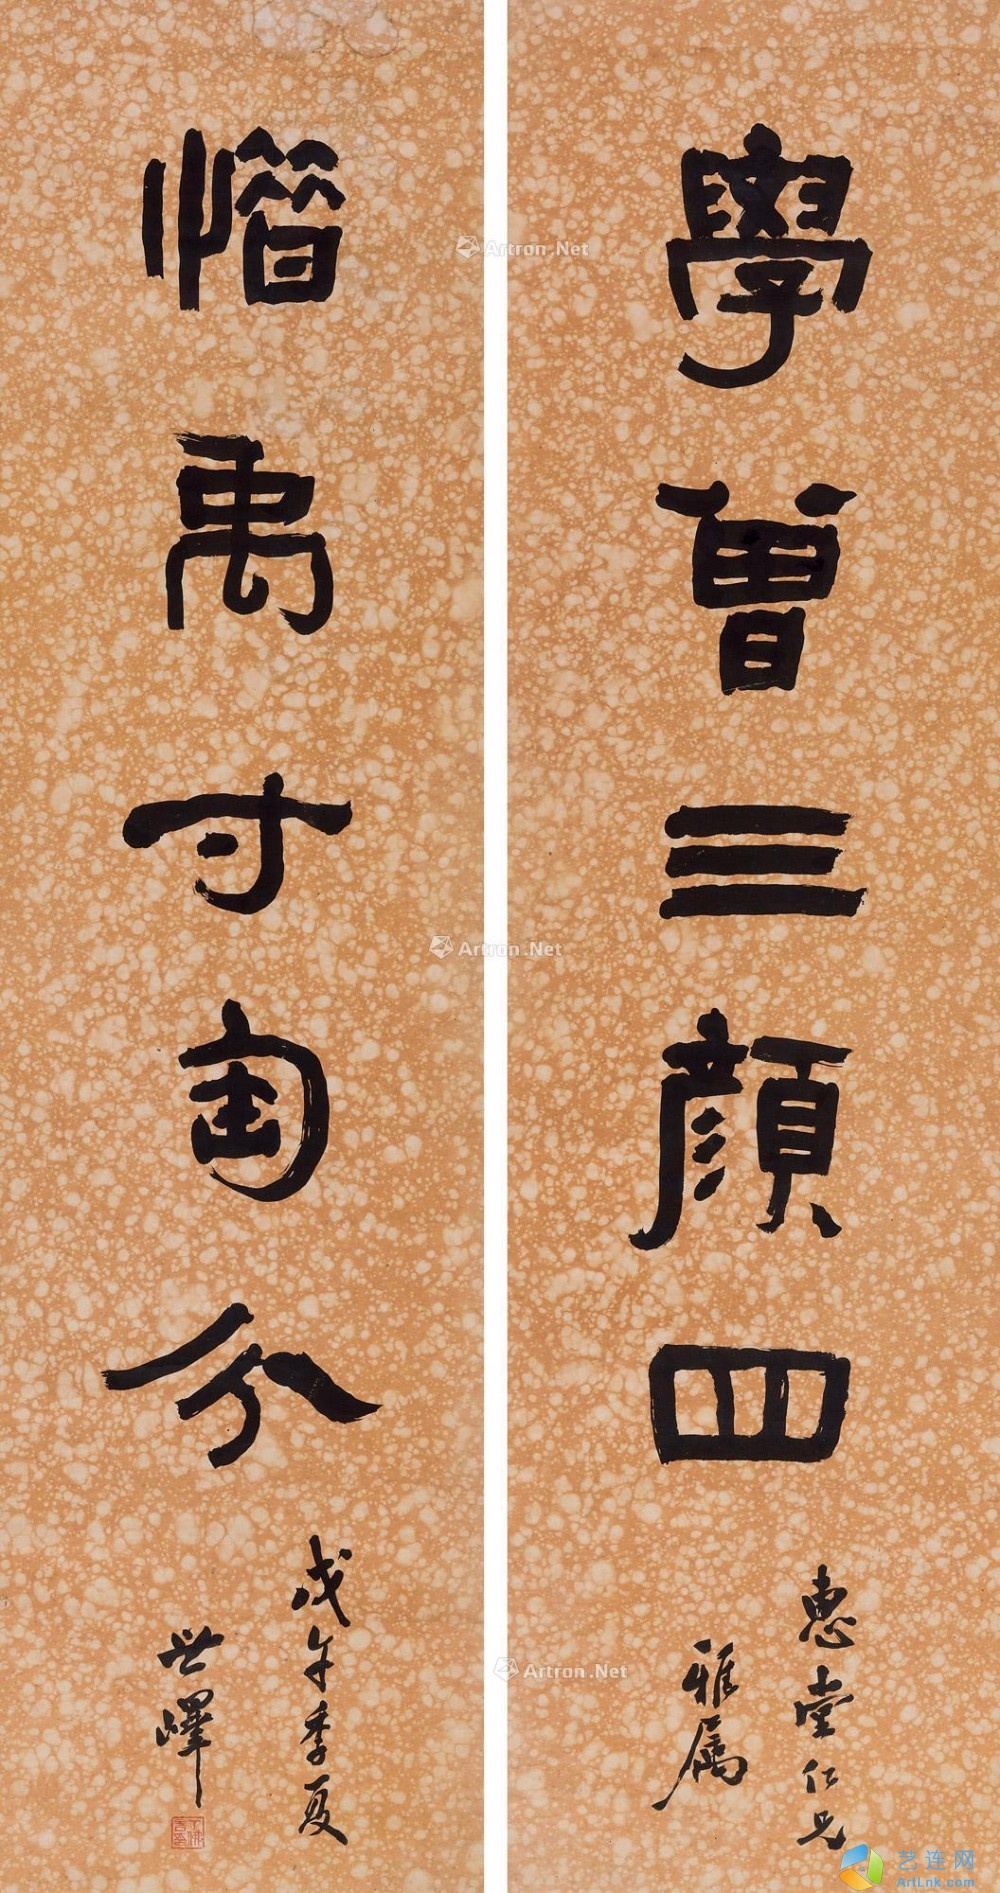 學曾三顏四
惠堂仁兄
雅属
惜禹寸匋分
戊午季夏
世嶧
Artron.Net
Artron.Net
Artron.Net
艺连网
ArtLnk.com